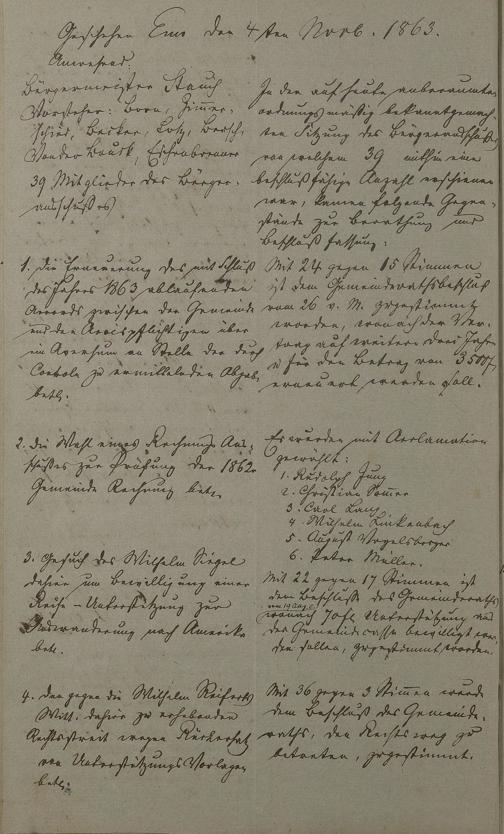 Geschehen Ems den 4ten Novb. 1863.
Anwesend:
Bürgermeister Stauch
Vorsteher: Born, Zimmer-
schied, Becker, Lotz, Bersch,
Vonder Bruck, Eschenbrenner
39 Mitglieder des Bürger-
ausschußes
In der auf heute anberaumten
ordnungsmäßig bekanntgemach-
ten Sitzung des Bürgerausschußes
von welchem 39 mithin eine
beschlußfähige Anzahl erschienen
war, kamen folgende Gegen-
stände zur Berathung und
Beschlußfassung:
1. die Erneuerung des mit Schluß
des Jahres 1863 ablaufenden
Accords zwischen der Gemeinde
und den Accispflichtigen über
im Aversum an Stelle der durch
Controle zu ermittelnden Abgabe
betr.
Mit 24 gegen 15 Stimmen
ist dem Gemeinderathsbeschluß
vom 26 v. M. zugestimmt
worden, wonach der Ver-
trag auf weitere drei Jahre
für den Betrag von 3500 f
erneuert werden soll.
2. die Wahl eines Rechnungs Aus-
schußes zur Prüfung der 1862r
Gemeinde Rechnung betr.
Es wurden mit Acclamation
gewählt:
1. Rudolph Jung
2. Christian Sommer
3. Carl Lang
4. Wilhelm Linkenbach
5. August Vogelsberger
6. Peter Müller.
3. Gesuch des Wilhelm Siegel
dahier um Bewilligung einer
Reise-Unterstützung zur
Auswanderung nach Amerika
betr.
Mit 22 gegen 17 Stimmen ist
dem Beschluß des Gemeinderaths
vom 19 Aug.
wonach 70 fl Unterstützung aus
der Gemeindecasse bewilligt wer-
den sollen, zugestimmt worden.
4. den gegen die Wilhelm Reiferts
Witt. dahier zu erhebenden
Rechtsstreit wegen Rückersatz
von Unterstützungs Vorlagen
betr.
Mit 36 gegen 3 Stimmen wurde
dem Beschluß des Gemeinde-
raths, den Rechtsweg zu
betreten, zugestimmt.